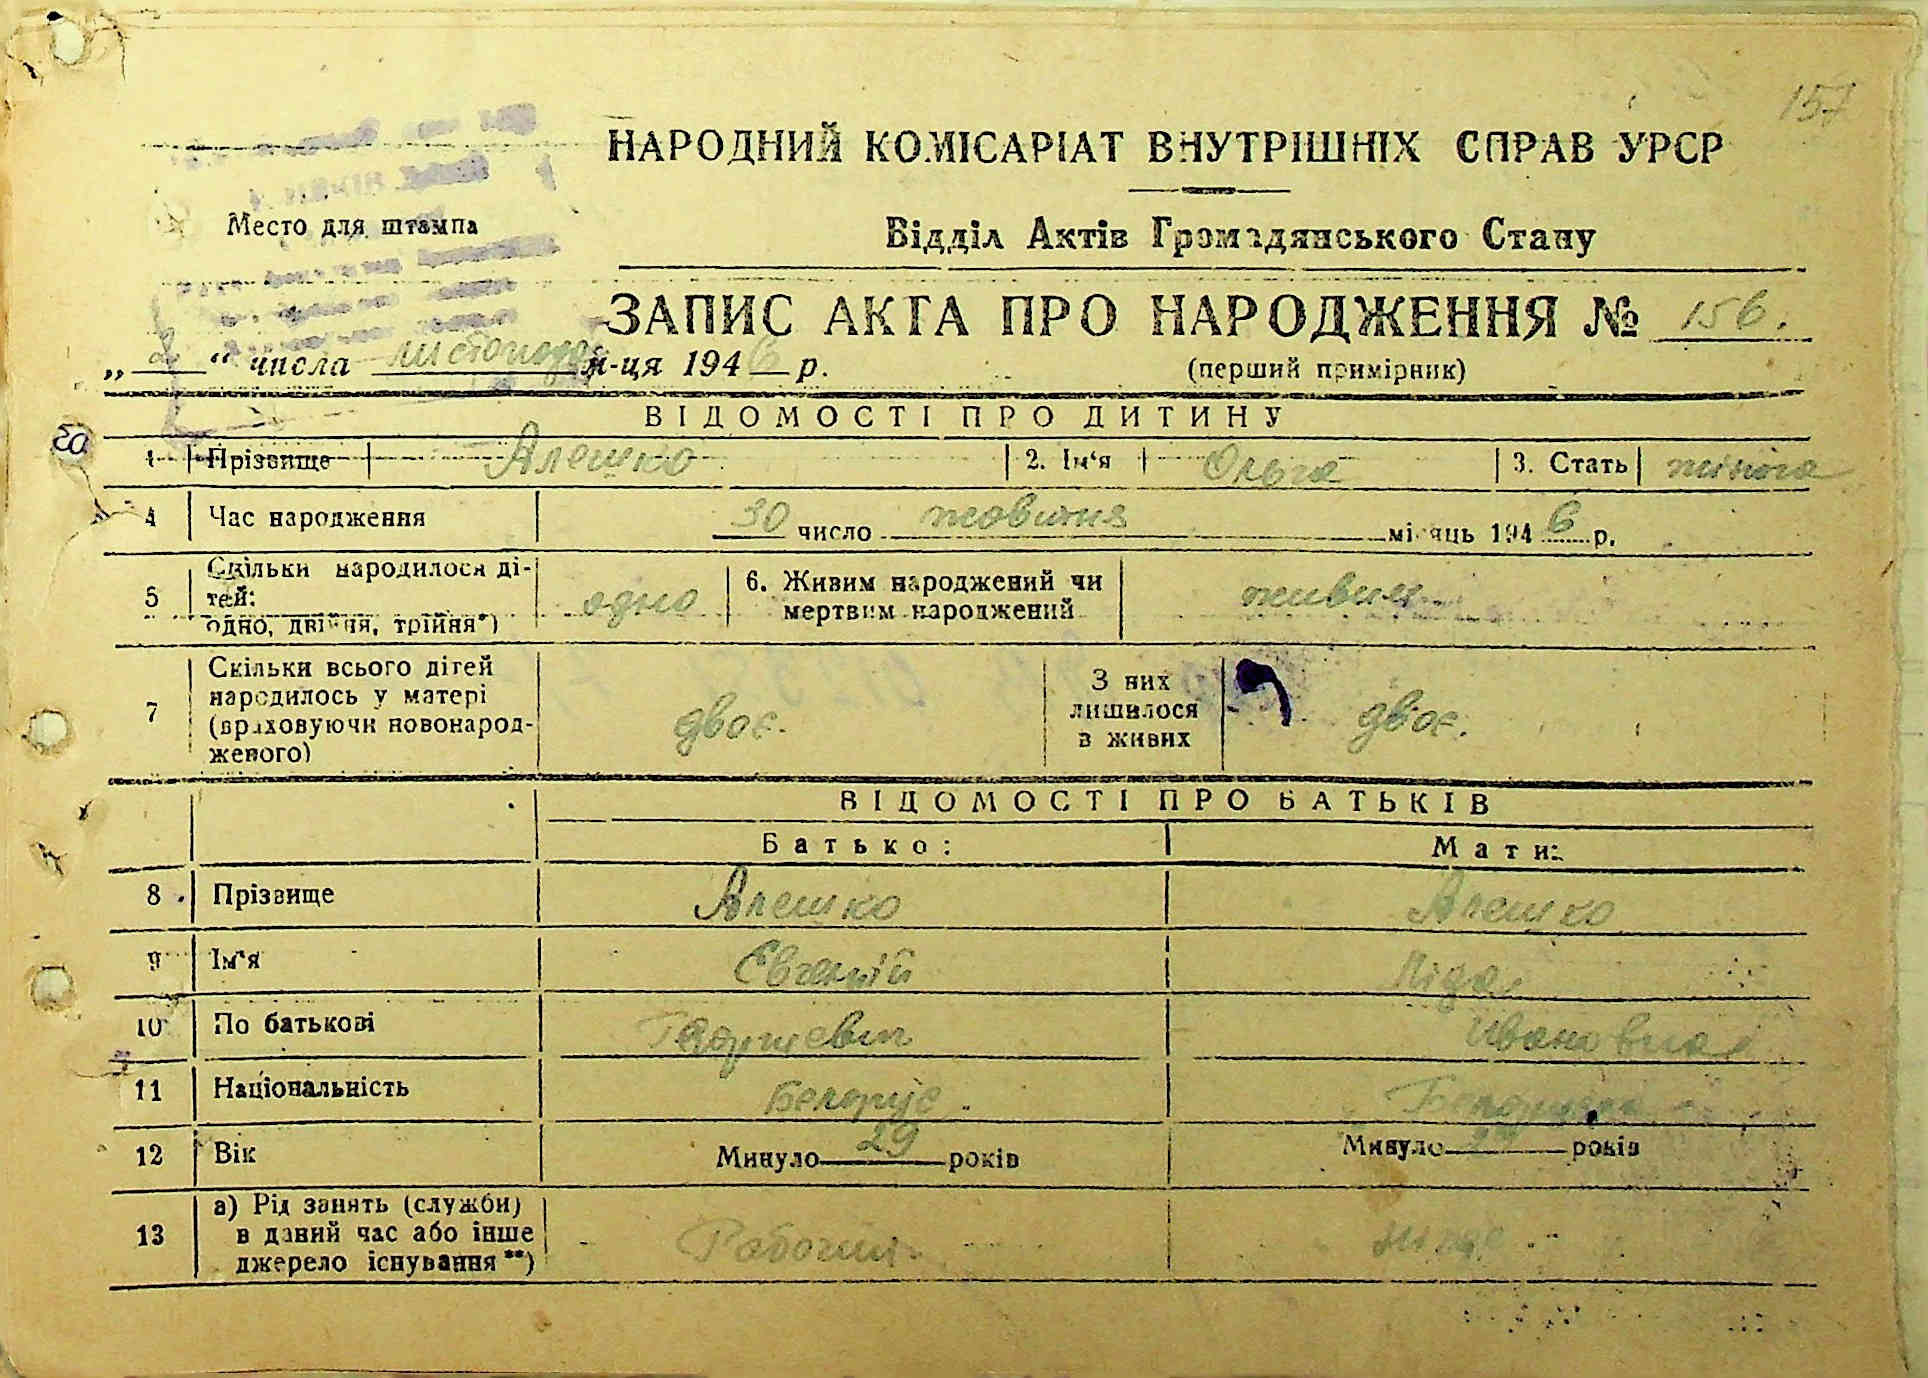 157
НАРОДНИЙ КОМІСАРІАТ ВНУТРІШНІХ СПРАВ УРСР
Место для штампа
Відділ Актів Громадянського Стану
ЗАПИС АКТА ПРО НАРОДЖЕННЯ № 156.
„2“ числа листопада м-ця 1946 р.
(перший примірник)
ВІДОМОСТІ ПРО ДИТИНУ
1 Прізвище Алешко 2. Ім‘я Ольга 3. Стать жіноча
4 Час народження 30 число жовтня місяць 1946 р.
5 Скільки народилося ді-
тей:
одно, двійня, трійня*) одно 6. Живим народжений чи
мертвим народжений живим
7 Скільки всього дітей
народилось у матері
(враховуючи новонарод-
женого) двоє. З них
лишилося
в живих двоє.
ВІДОМОСТІ ПРО БАТЬКІВ
Батько: Мати:
8 Прізвище Алешко Алешко
9 Ім‘я Євгений Ліда
10 По батькові Георгиевич Ивановна
11 Національність Белорус Белоруска
12 Вік Минуло 29 років Минуло років
13 а) Рід занять (служби)
в даний час або інше
джерело існування **) Рабочий